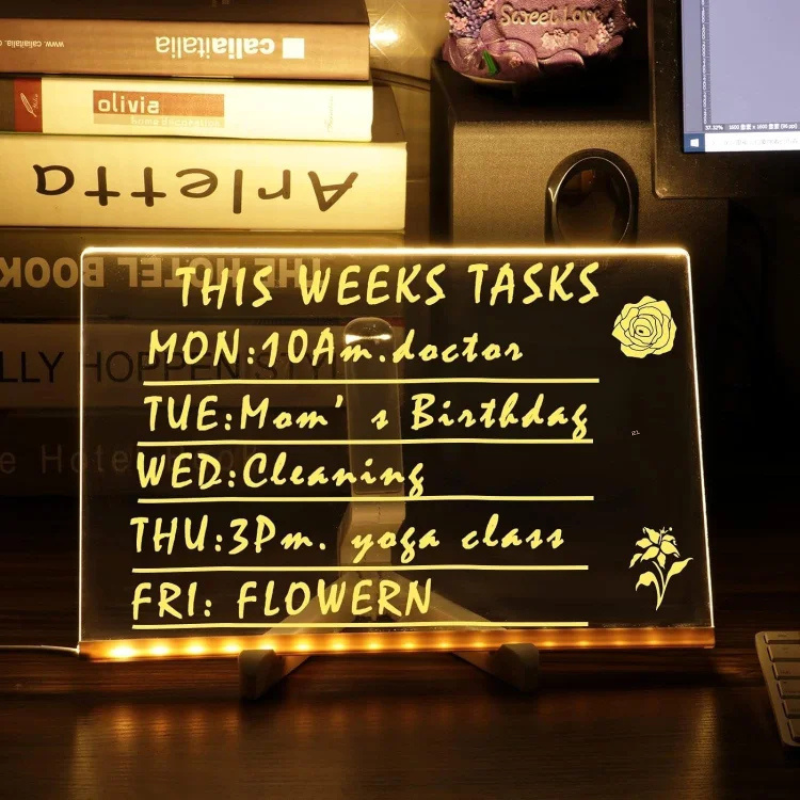 www.caliaitalia.
caliaitalia
olivia
Arletta
THE HOTEL BOOK
LLY HOPPEN STY
e Hotel Book
Sweet Love
THIS WEEKS TASKS
MON:10Am.doctor
TUE:Mom's Birthday
WED:Cleaning
THU:3Pm. yoga class
FRI: FLOWERN